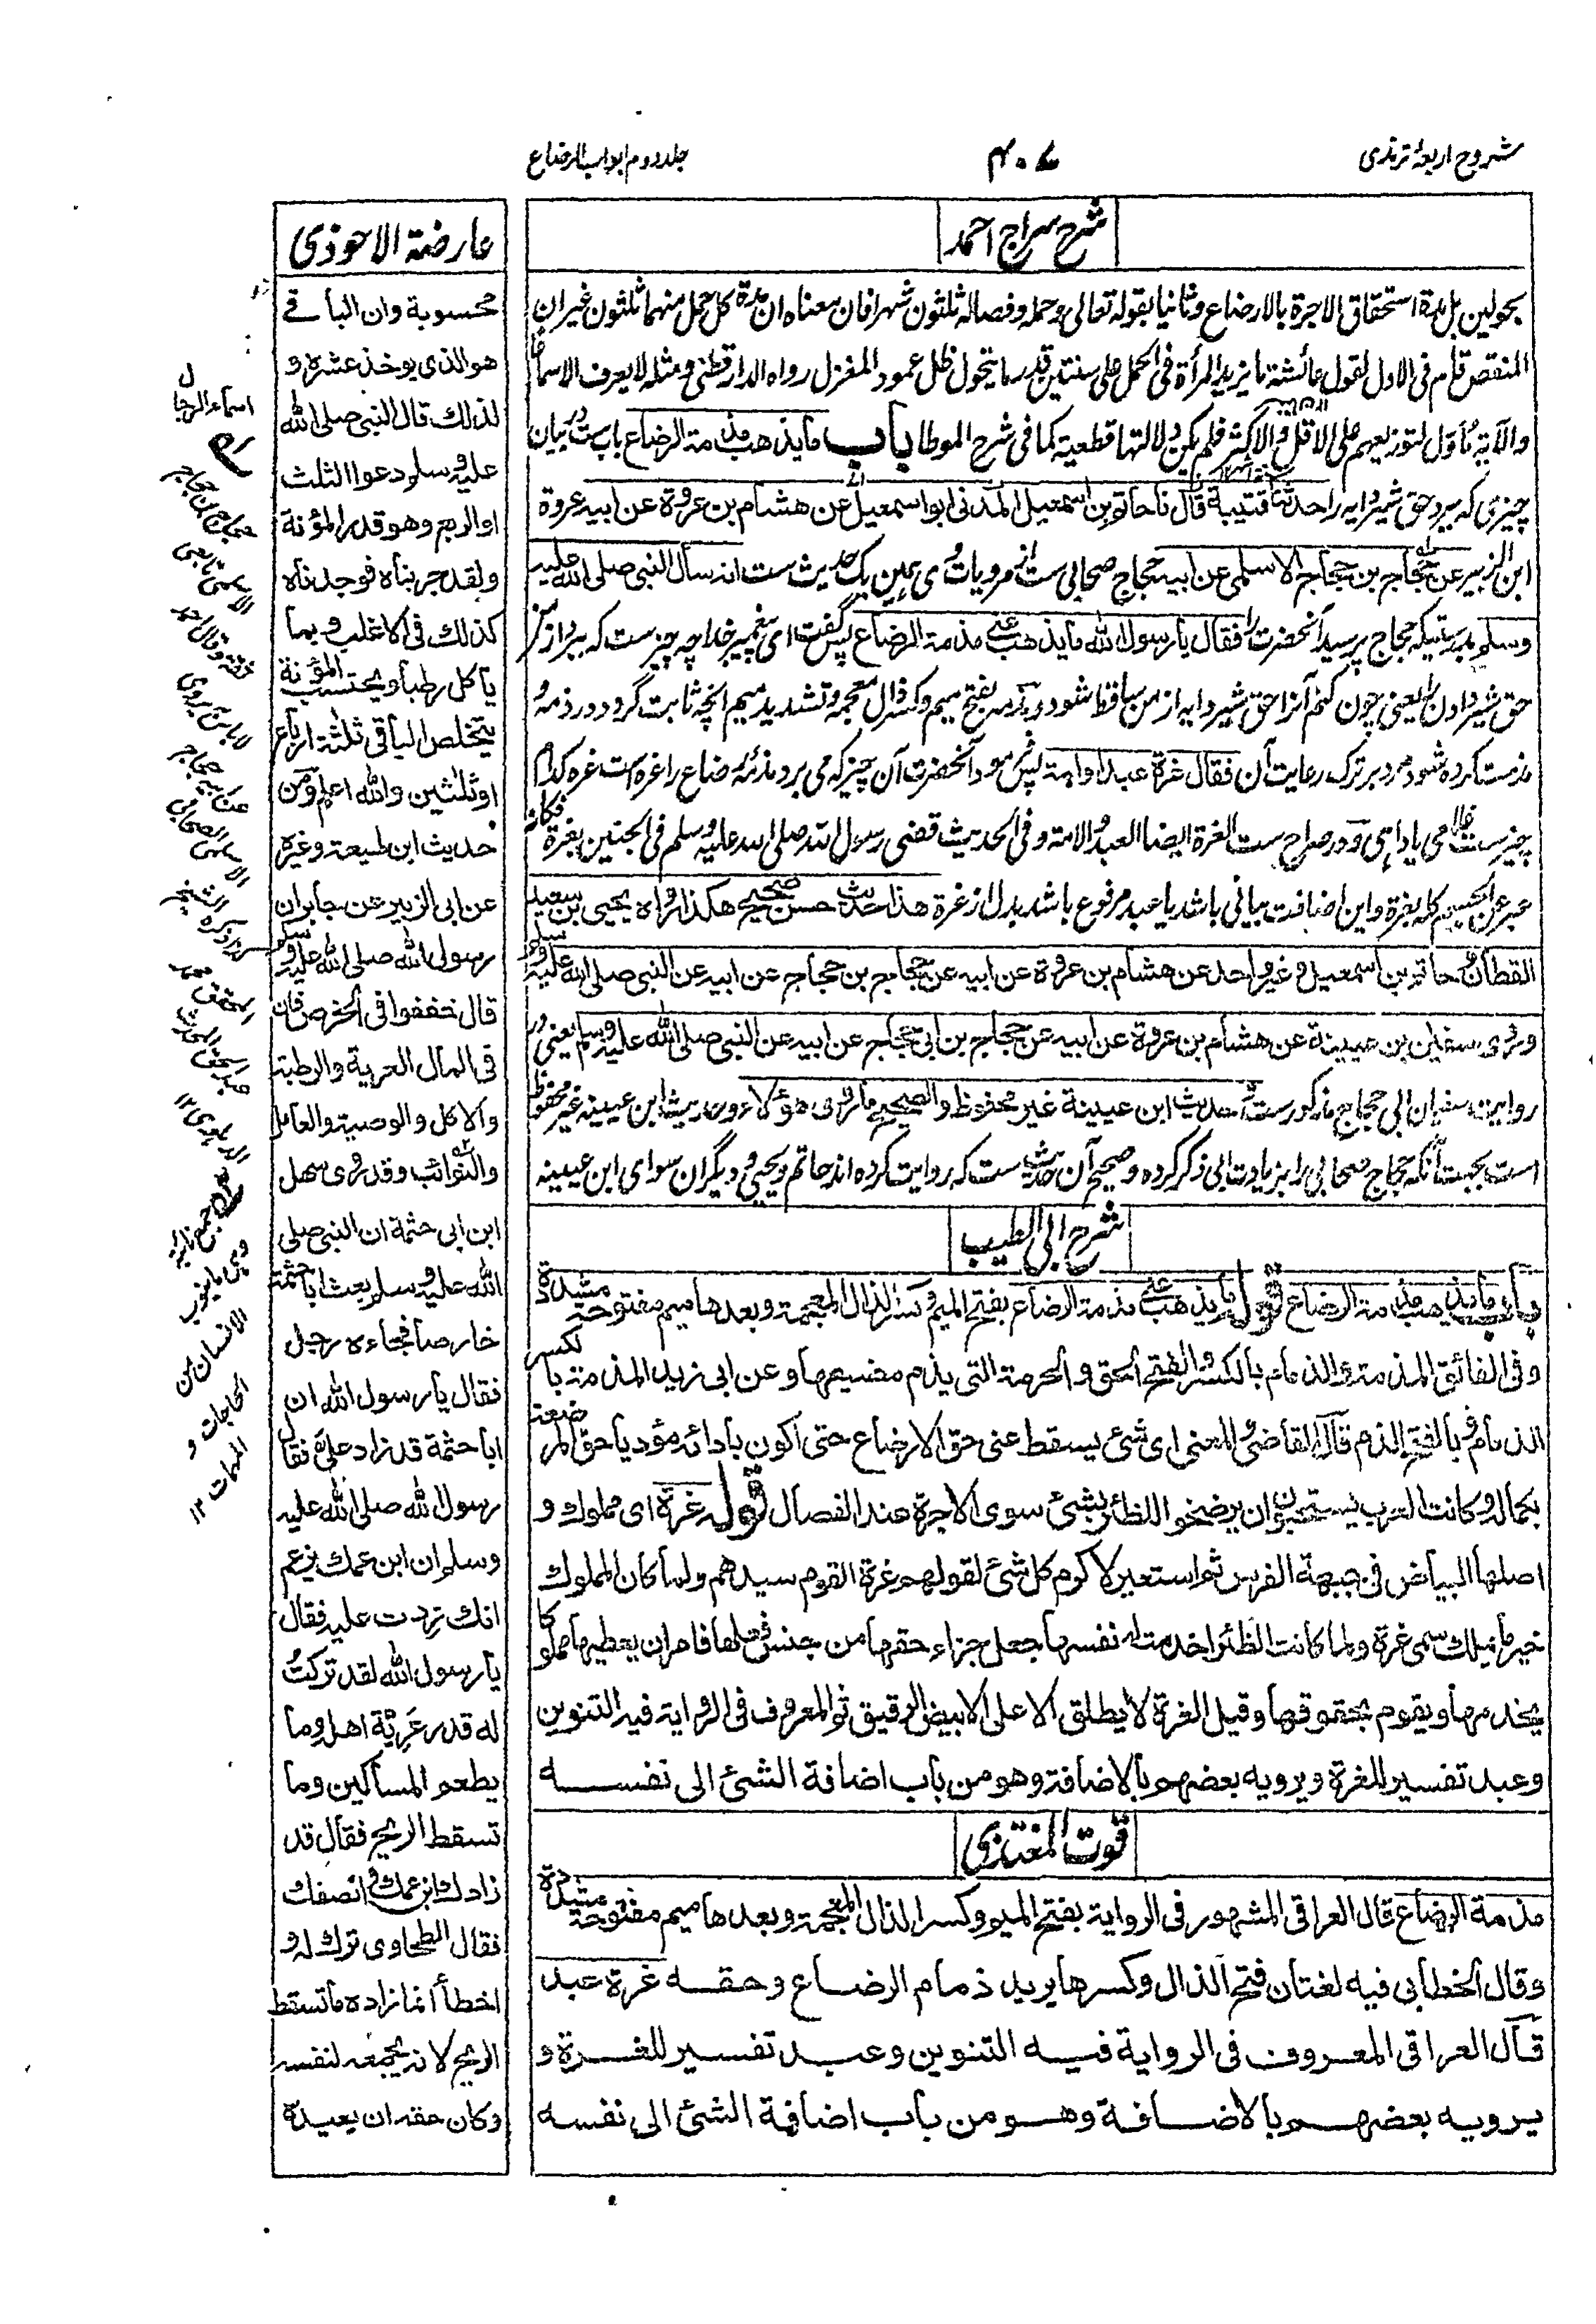 شروح اربعۂ ترمذی
۴۰۷
جلد دوم ابواب الرضاع
شرح سراج احمد
بحولین بل مدة استحقاق الاجرة بالارضاع وثانیا بقوله تعالی وحمله وفصاله ثلثون شهرا فان معناه ان مدة کل حمل منهما ثلثون غیر ان
المنقص قام فی الاول لقول عائشة ما یزید المرأة فی الحمل علی سنتین قدر ما یتحول ظل عمود المغزل رواه الدارقطنی ومثله لا یعرف الا سماعا
والآیة تأول لتوزیعهم علی الاقل والاکثر فلم یکن دلالتها قطعیة کما فی شرح الموطا باب ما یذهب مذمة الرضاع باب ست در بیان
چیزی که ببرد حق شیر دایه را حدثنا قتیبة قال نا حاتم بن اسمعیل المدنی ابو اسمعیل عن هشام بن عروة عن ابیه عروة
ابن الزبیر عن حجاج بن حجاج الاسلمی عن ابیه حجاج صحابی ست از مرویات وی همین یک حدیث ست انه سأل النبی صلی الله علیه
وسلم بدرستیکه حجاج پرسید آنحضرت را فقال یا رسول الله ما یذهب عنی مذمة الرضاع پس گفت ای پیغمبر خدا چه چیز ست که ببرد از من
حق شیر دادن را یعنی چون کنم آنرا حق شیر دایه از من ساقط شود و مذمه بفتح میم وکسر ذال معجمه وتشدید میم آنچه ثابت گردد در ذمه و
مذمت کرده شود مرد بر ترک رعایت آن فقال غرة عبد او امة پس فرمود آنحضرت آن چیز که می برد مذمۀ رضاع را غره است غره کدام
چیز ست غلامی یا داهی و در صراح ست الغرة ایضا العبد والامة وفی الحدیث قضی رسول الله صلی الله علیه وسلم فی الجنین بغرة فکانه
عبر عن الجسم کله بغرة واین اضافت بیانی باشد یا عبد مرفوع باشد بدل از غرة هذا حدیث حسن صحیح هکذا رواه یحیی بن سعید
القطان وحاتم بن اسمعیل وغیر واحد عن هشام بن عروة عن ابیه عن حجاج بن حجاج عن ابیه عن النبی صلی الله علیه وسلم
وروی سفین بن عیینة عن هشام بن عروة عن ابیه عن حجاج بن ابی حجاج عن ابیه عن النبی صلی الله علیه وسلم یعنی در
روایت سفیان ابی حجاج مذکور ست وحدیث ابن عیینة غیر محفوظ والصحیح ما روی هؤلاء وحدیث ابن عیینه غیر محفوظ
است بجهت آنکه حجاج صحابی را بزیادت ابی ذکر کرده وصحیح آن حدیث ست که روایت کرده اند حاتم ویحیی و دیگران سوای ابن عیینه
شرح ابی الطیب
باب ما یذهب مذمة الرضاع قوله ما یذهب عنی مذمة الرضاع بفتح المیم وکسر الذال المعجمة وبعدها میم مفتوحة مشددة
وفی الفائق المذمة والذمام بالکسر والفتح الحق والحرمة التی یذم مضیعها وعن ابی زید المذمة بالکسر
الذمام وبالفتح الذم قال القاضی والمعنی ای شئ یسقط عنی حق الارضاع حتی اکون بادائه مؤدیا حق المرضعة
بکماله وکانت العرب یستحبون ان یرضخوا للظئر بشئ سوی الاجرة عند الفصال قوله غرة ای مملوك و
اصلها البیاض فی جبهة الفرس ثم استعیر لاکرم کل شئ لقولهم غرة القوم سیدهم ولما کان المملوك
خیر ما یملك سمی غرة ولما کانت الظئر اخدمت له نفسها جعل جزاء حقها من جنس فعلها فامر ان یعطیها مملوکا
یخدمها ویقوم بحقوقها وقیل الغرة لا یطلق الا علی الابیض الرقیق ثم المعروف فی الروایة فیه التنوین
وعبد تفسیر للغرة ویرویه بعضهم بالاضافة وهو من باب اضافة الشئ الی نفسه
قوت المغتذی
مذمة الرضاع قال العراقی المشهور فی الروایة بفتح المیم وکسر الذال المعجمة وبعدها میم مفتوحة مشددة
وقال الخطابی فیه لغتان فتح الذال وکسرها یرید ذمام الرضاع وحقه غرة عبد
قال العراقی المعروف فی الروایة فیه التنوین وعبد تفسیر للغرة و
یرویه بعضهم بالاضافة وهو من باب اضافة الشئ الی نفسه
عارضة الاحوذی
محسوبة وان الباقی
هو الذی یوخذ عشره و
لذلك قال النبی صلی الله
علیه وسلم دعوا الثلث
او الربع وهو قدر المؤنة
ولقد جربناه فوجدناه
کذلك فی الاغلب وبما
یأکل رطبا ویحتسب المؤنة
یتخلص الباقی ثلثة ارباع
او ثلثین والله اعلم ومن
حدیث ابن لهیعة وغیره
عن ابی الزبیر عن جابر ان
رسول الله صلی الله علیه وسلم
قال خففوا فی الخرص فان
فی المال العریة والرطبة
والاکل والوصیة والعامل
والنوائب وقد روی سهل
ابن ابی حثمة ان النبی صلی
الله علیه وسلم بعث ابا حثمة
خارصا فجاءه رجل
فقال یا رسول الله ان
ابا حثمة قد زاد علی فقال
رسول الله صلی الله علیه
وسلم ان ابن عمك یزعم
انك زدت علیه فقال
یا رسول الله لقد ترکت
له قدر عریة اهله وما
یطعم المساکین وما
تسقط الریح فقال قد
زادك ابن عمك وانصفك
فقال الطحاوی ترك له و
اخطأ انما زاده ما تسقط
الریح لانه یجمعه لنفسه
وکان حقه ان یعیده
اسماء الرجال
حجاج بن حجاج
الاسلمی تابعی
عن ابیه حجاج
الاسلمی الصحابی
الدهلوی ۱۲
وهی ما ینوب
الانسان من
الحاجات و
المهمات ۱۲